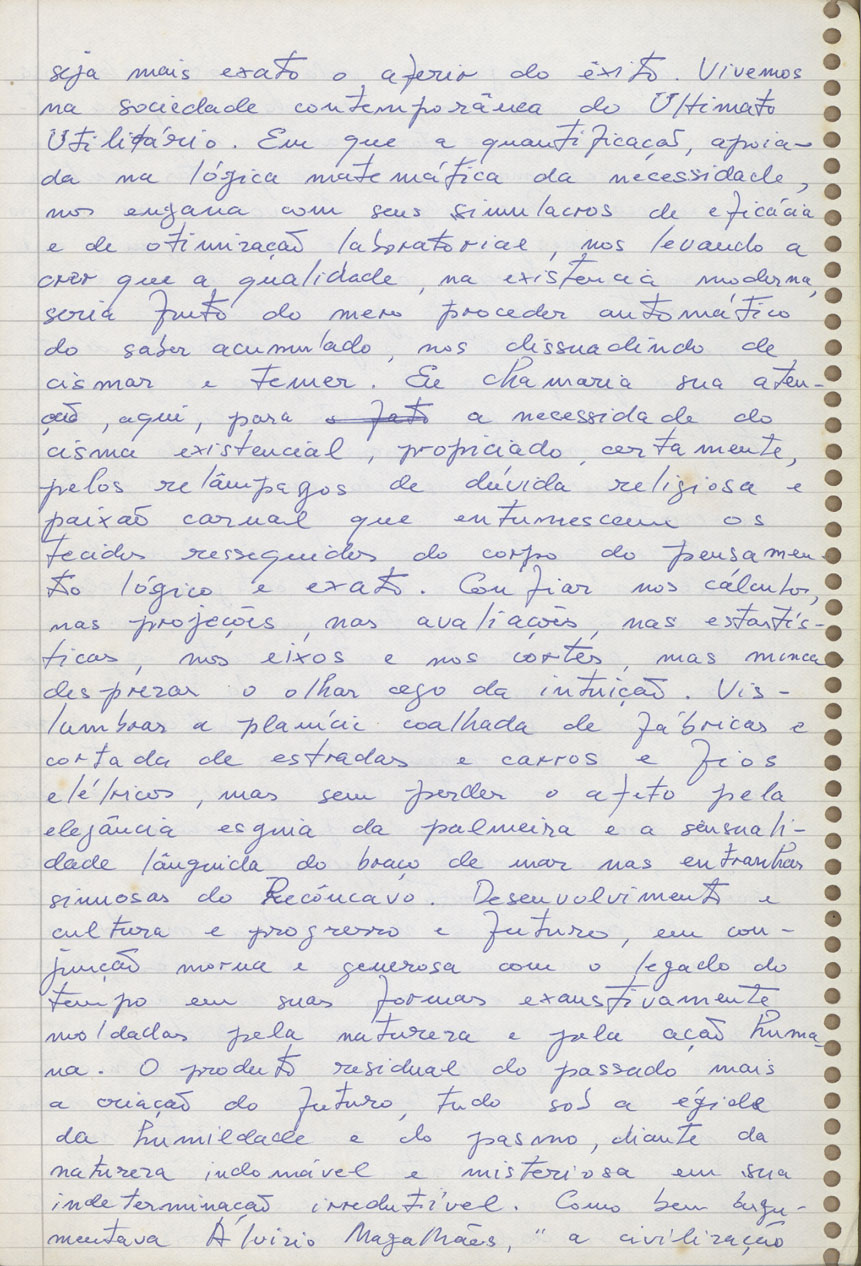 seja mais exato o aferir do êxito. Vivemos
na sociedade contemporânea do Ultimato
Utilitário. Em que a quantificação, apoia-
da na lógica matemática da necessidade,
nos engana com seus simulacros de eficácia
e de otimização laboratorial, nos levando a
crer que a qualidade, na existência moderna,
seria fruto do mero proceder automático
do saber acumulado, nos dissuadindo de
cismar e temer. Eu chamaria sua aten-
ção, aqui, para o fato a necessidade do
cisma existencial, propiciado, certamente,
pelos relâmpagos de dúvida religiosa e
paixão carnal que entumescem os
tecidos resseguidos do corpo do pensamen-
to lógico e exato. Confiar nos cálculos,
nas projeções, nas avaliações, nas estartís-
ticas, nos eixos e nos cortes, mas nunca
desprezar o olhar cego da intuição. Vis-
lumbrar a planície coalhada de fábricas e
cortada de estradas e carros e fios
elétricos, mas sem perder o afeto pela
elegância esguia da palmeira e a sensuali-
dade lânguida do braço de mar nas entranhas
sinuosas do Recôncavo. Desenvolvimento e
cultura e progresso e futuro, em con-
junção morna e generosa com o legado do
tempo em suas formas exaustivamente
moldadas pela natureza e pela ação huma-
na. O produto residual do passado mais
a criação do futuro, tudo sob a égide
da humildade e do pasmo, diante da
natureza indomável e misteriosa em sua
indeterminação irredutível. Como bem argu-
mentava Álvizio Magalhães, "a civilização